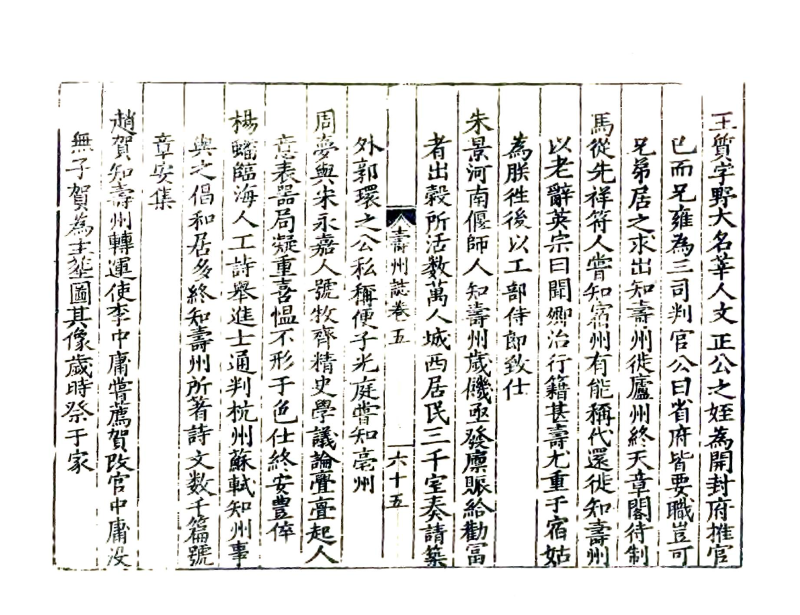 王質字野大名莘人文正公之姪為開封府推官
已而兄雍為三司判官公曰省府皆要職豈可
兄弟居之求出知壽州徙廬州終天章閣待制
馬從先祥符人嘗知宿州有能稱代還徙知壽州
以老辭英宗曰聞卿治行籍甚壽尤重于宿姑
為朕徃後以工部侍郎致仕
朱景河南偃師人知壽州歲饑亟發廪賑給勸冨
者出穀所活数萬人城西居民三千室奏請築
外郭環之公私稱便子光庭嘗知亳州
壽州誌卷五
六十五
周夢與宋永嘉人號牧齊精史學議論亹亹起人
意表器局凝重喜愠不形于色仕終安豊倅
楊蟠臨海人工詩舉進士通判杭州蘇軾知州事
與之倡和居多終知壽州所著詩文数千篇號
章安集
趙賀知壽州轉運使李中庸嘗薦賀改官中庸没
無子賀為主塟圖其像歲時祭于家